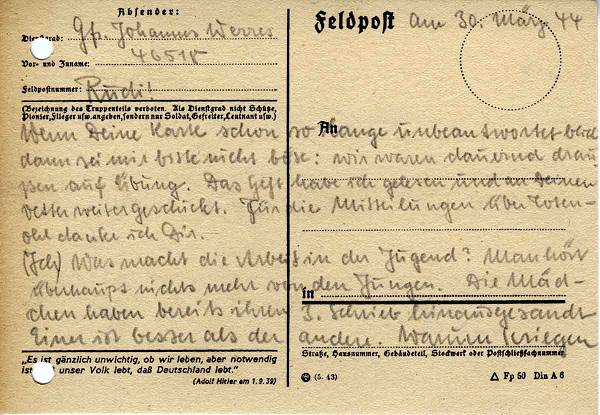 Absender:
Feldpost am 30. März 44
Dienstgrad: Gfr. Johannes Werres
Vor- und Zuname: 46518
Feldpostnummer:
Rudi!
(Bezeichnung des Truppenteils verboten. Als Dienstgrad nicht Schütze,
Pionier, Flieger usw. angeben, sondern nur Soldat, Gefreiter, Leutnant usw.)
An
Wenn Deine Karte schon so lange unbeantwortet blieb
dann sei mir bitte nicht böse: wir waren dauernd drau-
ßen auf Übung. Das Heft habe ich gelesen und an Deinen
Vetter weitergeschickt. Für die Mitteilungen über Toten-
ohl danke ich Dir.
(Ich) Was macht die Arbeit in der Jugend? Man hört
überhaupt nichts mehr von den Jungen. Die Mäd-
in
chen haben bereits ihren 3. Schrieb hinausgesandt
Einer ist besser als der andere. Warum kriegen
Straße, Hausnummer, Gebäudeteil, Stockwerk oder Postschließfachnummer
„Es ist gänzlich unwichtig, ob wir leben, aber notwendig
ist unser Volk lebt, daß Deutschland lebt.“
(Adolf Hitler am 1. 9. 39)
(5. 43)
Fp 50 Din A 6